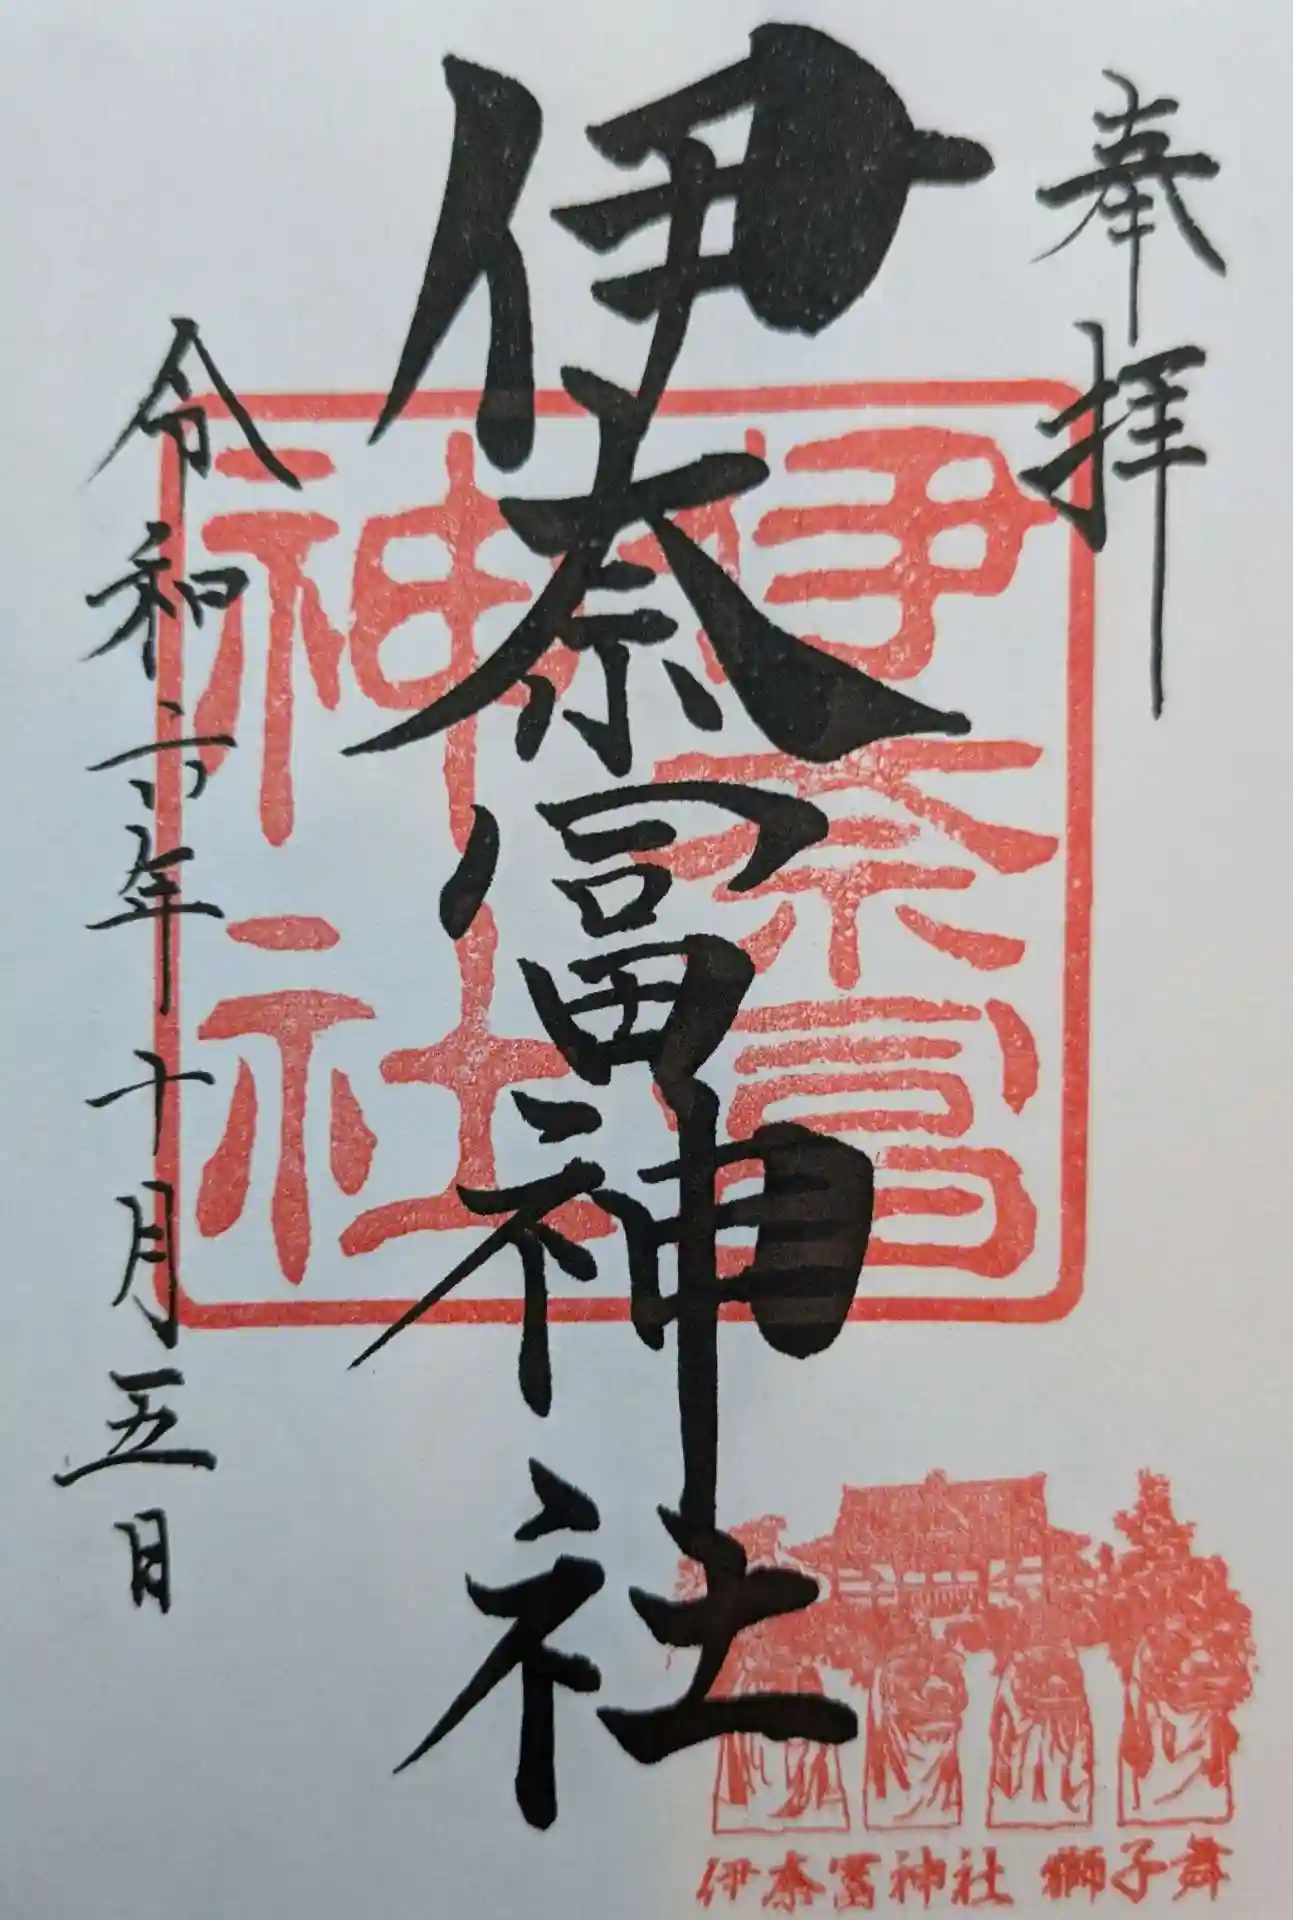 奉拝
伊奈冨神社
令和六年十月五日
伊奈冨
神社
伊奈冨神社 獅子舞